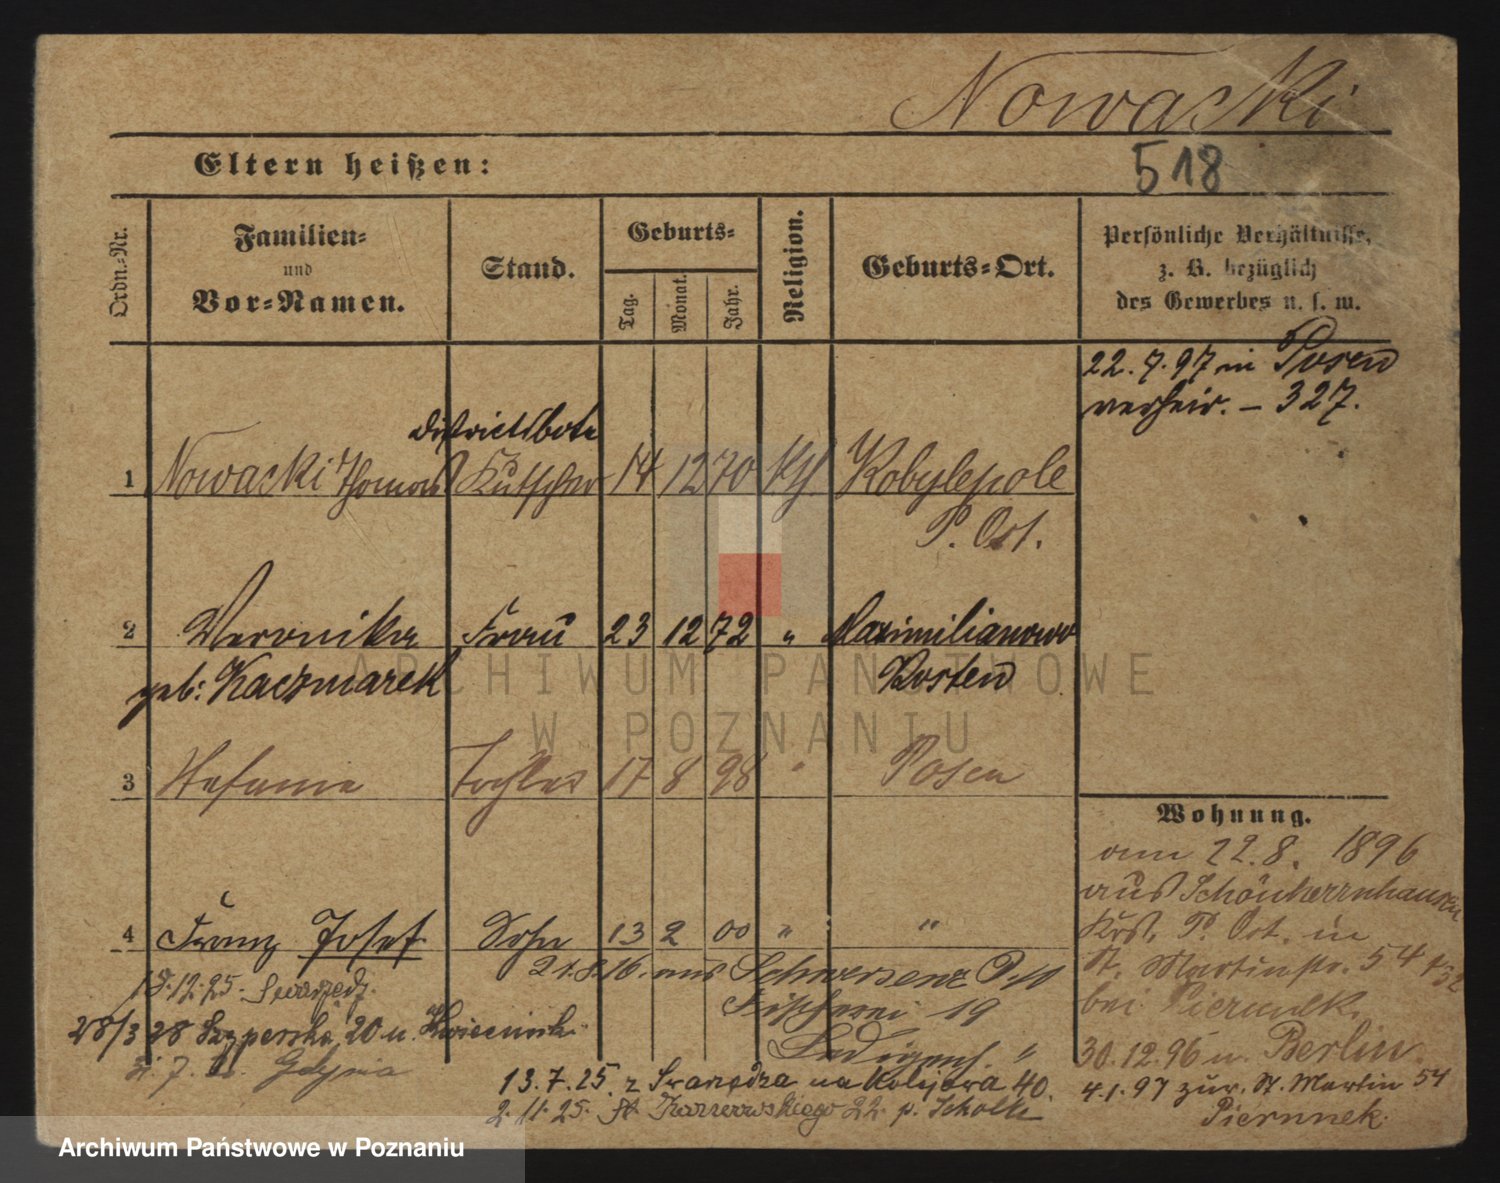 Nowacki
518
Eltern heißen:
Ordn.-Nr.
Familien-
und
Vor-Namen.
Stand.
Geburts-
Tag.
Monat.
Jahr.
Religion.
Geburts-Ort.
Persönliche Verhältnisse,
z. B. bezüglich
des Gewerbes u. s. w.
22. 7. 97 in Posen
verheir. – 327.
Distriktsbote
1 Nowacki Thomas Kutscher 14 12 70 kth Kobylepole
P. Ost.
2 Veronika Frau 23 12 72 " Maximilianowo
geb: Kaczmarek Kosten
3 Stefania Tochter 17 8 98 " Posen
Wohnung.
am 22. 8. 1896
aus Schönherrnhausen
Krs. P. Ost. in
St. Martinstr. 54
bei Piernnek.
30.12.96 n. Berlin
4.1.97 zur. St. Martin 54
Piernnek.
4 Franz Josef Sohn 13 2 00 " "
21.8.16. aus Schwersenz P.O
Fischerei 19
13.7.25. z Swarzędza na Kolejowa 40.
2.11.25. 22. p.
12.25. Swarzędz.
28/3 28 20 u.
7. Gdynia
ARCHIWUM PAŃSTWOWE
W POZNANIU
Archiwum Państwowe w Poznaniu